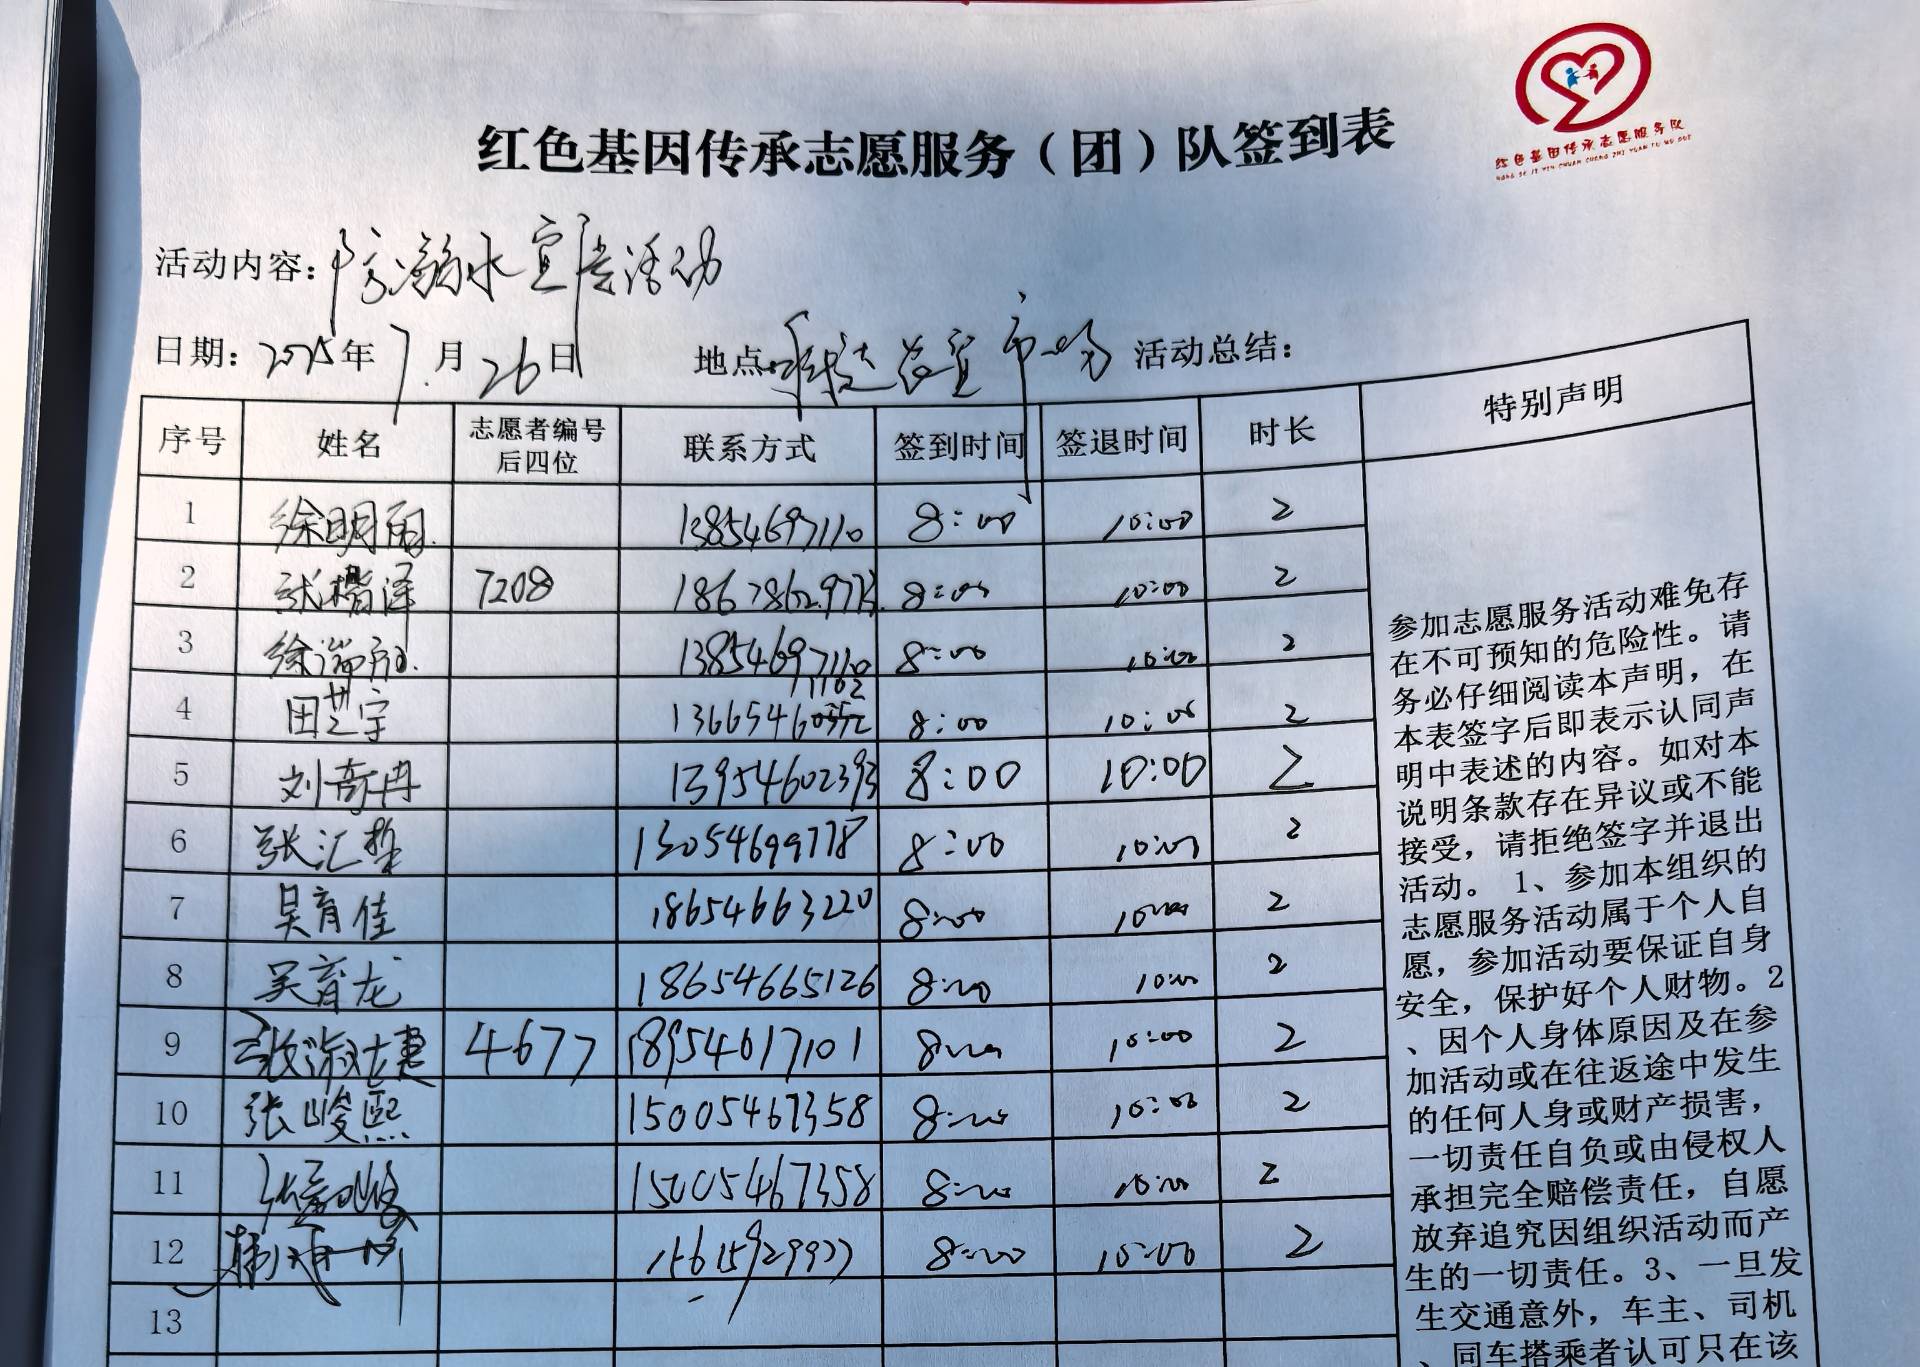 红色基因传承志愿服务（团）队签到表
红色基因传承志愿服务队
HONG SE JI YIN CHUAN CHENG ZHI YUAN FU WU DUI
活动内容：防溺水宣传活动
日期：2025年7月26日 地点 市场 活动总结：
序号 姓名 志愿者编号后四位 联系方式 签到时间 签退时间 时长 特别声明
1 徐明雨 13854697110 8:00 10:00 2
2 张楷泽 7208 8:00 10:00 2
3 13854697110 8:00 10:00 2
4 田芝宇 8:00 10:00 2
5 刘奇冉 13954602393 8:00 10:00 2
6 张汇哲 13054699778 8:00 10:00 2
7 吴育佳 18654663220 8:00 10:00 2
8 吴育龙 18654665126 8:00 10:00 2
9 4677 18954617101 8:00 10:00 2
10 张峻熙 15005467358 8:00 10:00 2
11 15005467358 8:00 10:00 2
12 15615929927 8:00 10:00 2
13
参加志愿服务活动难免存
在不可预知的危险性。请
务必仔细阅读本声明，在
本表签字后即表示认同声
明中表述的内容。如对本
说明条款存在异议或不能
接受，请拒绝签字并退出
活动。 1、参加本组织的
志愿服务活动属于个人自
愿，参加活动要保证自身
安全，保护好个人财物。2
、因个人身体原因及在参
加活动或在往返途中发生
的任何人身或财产损害，
一切责任自负或由侵权人
承担完全赔偿责任，自愿
放弃追究因组织活动而产
生的一切责任。3、一旦发
生交通意外，车主、司机
、同车搭乘者认可只在该